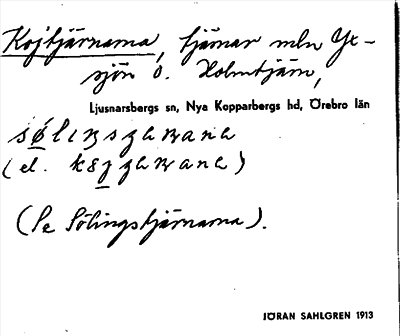 Kojtjärnarna, tjärnar mln Yx-
sjön o. Holmtjärn,
Ljusnarsbergs sn, Nya Kopparbergs hd, Örebro län
(el.
(Se Sölingstjärnarna).
JÖRAN SAHLGREN 1913